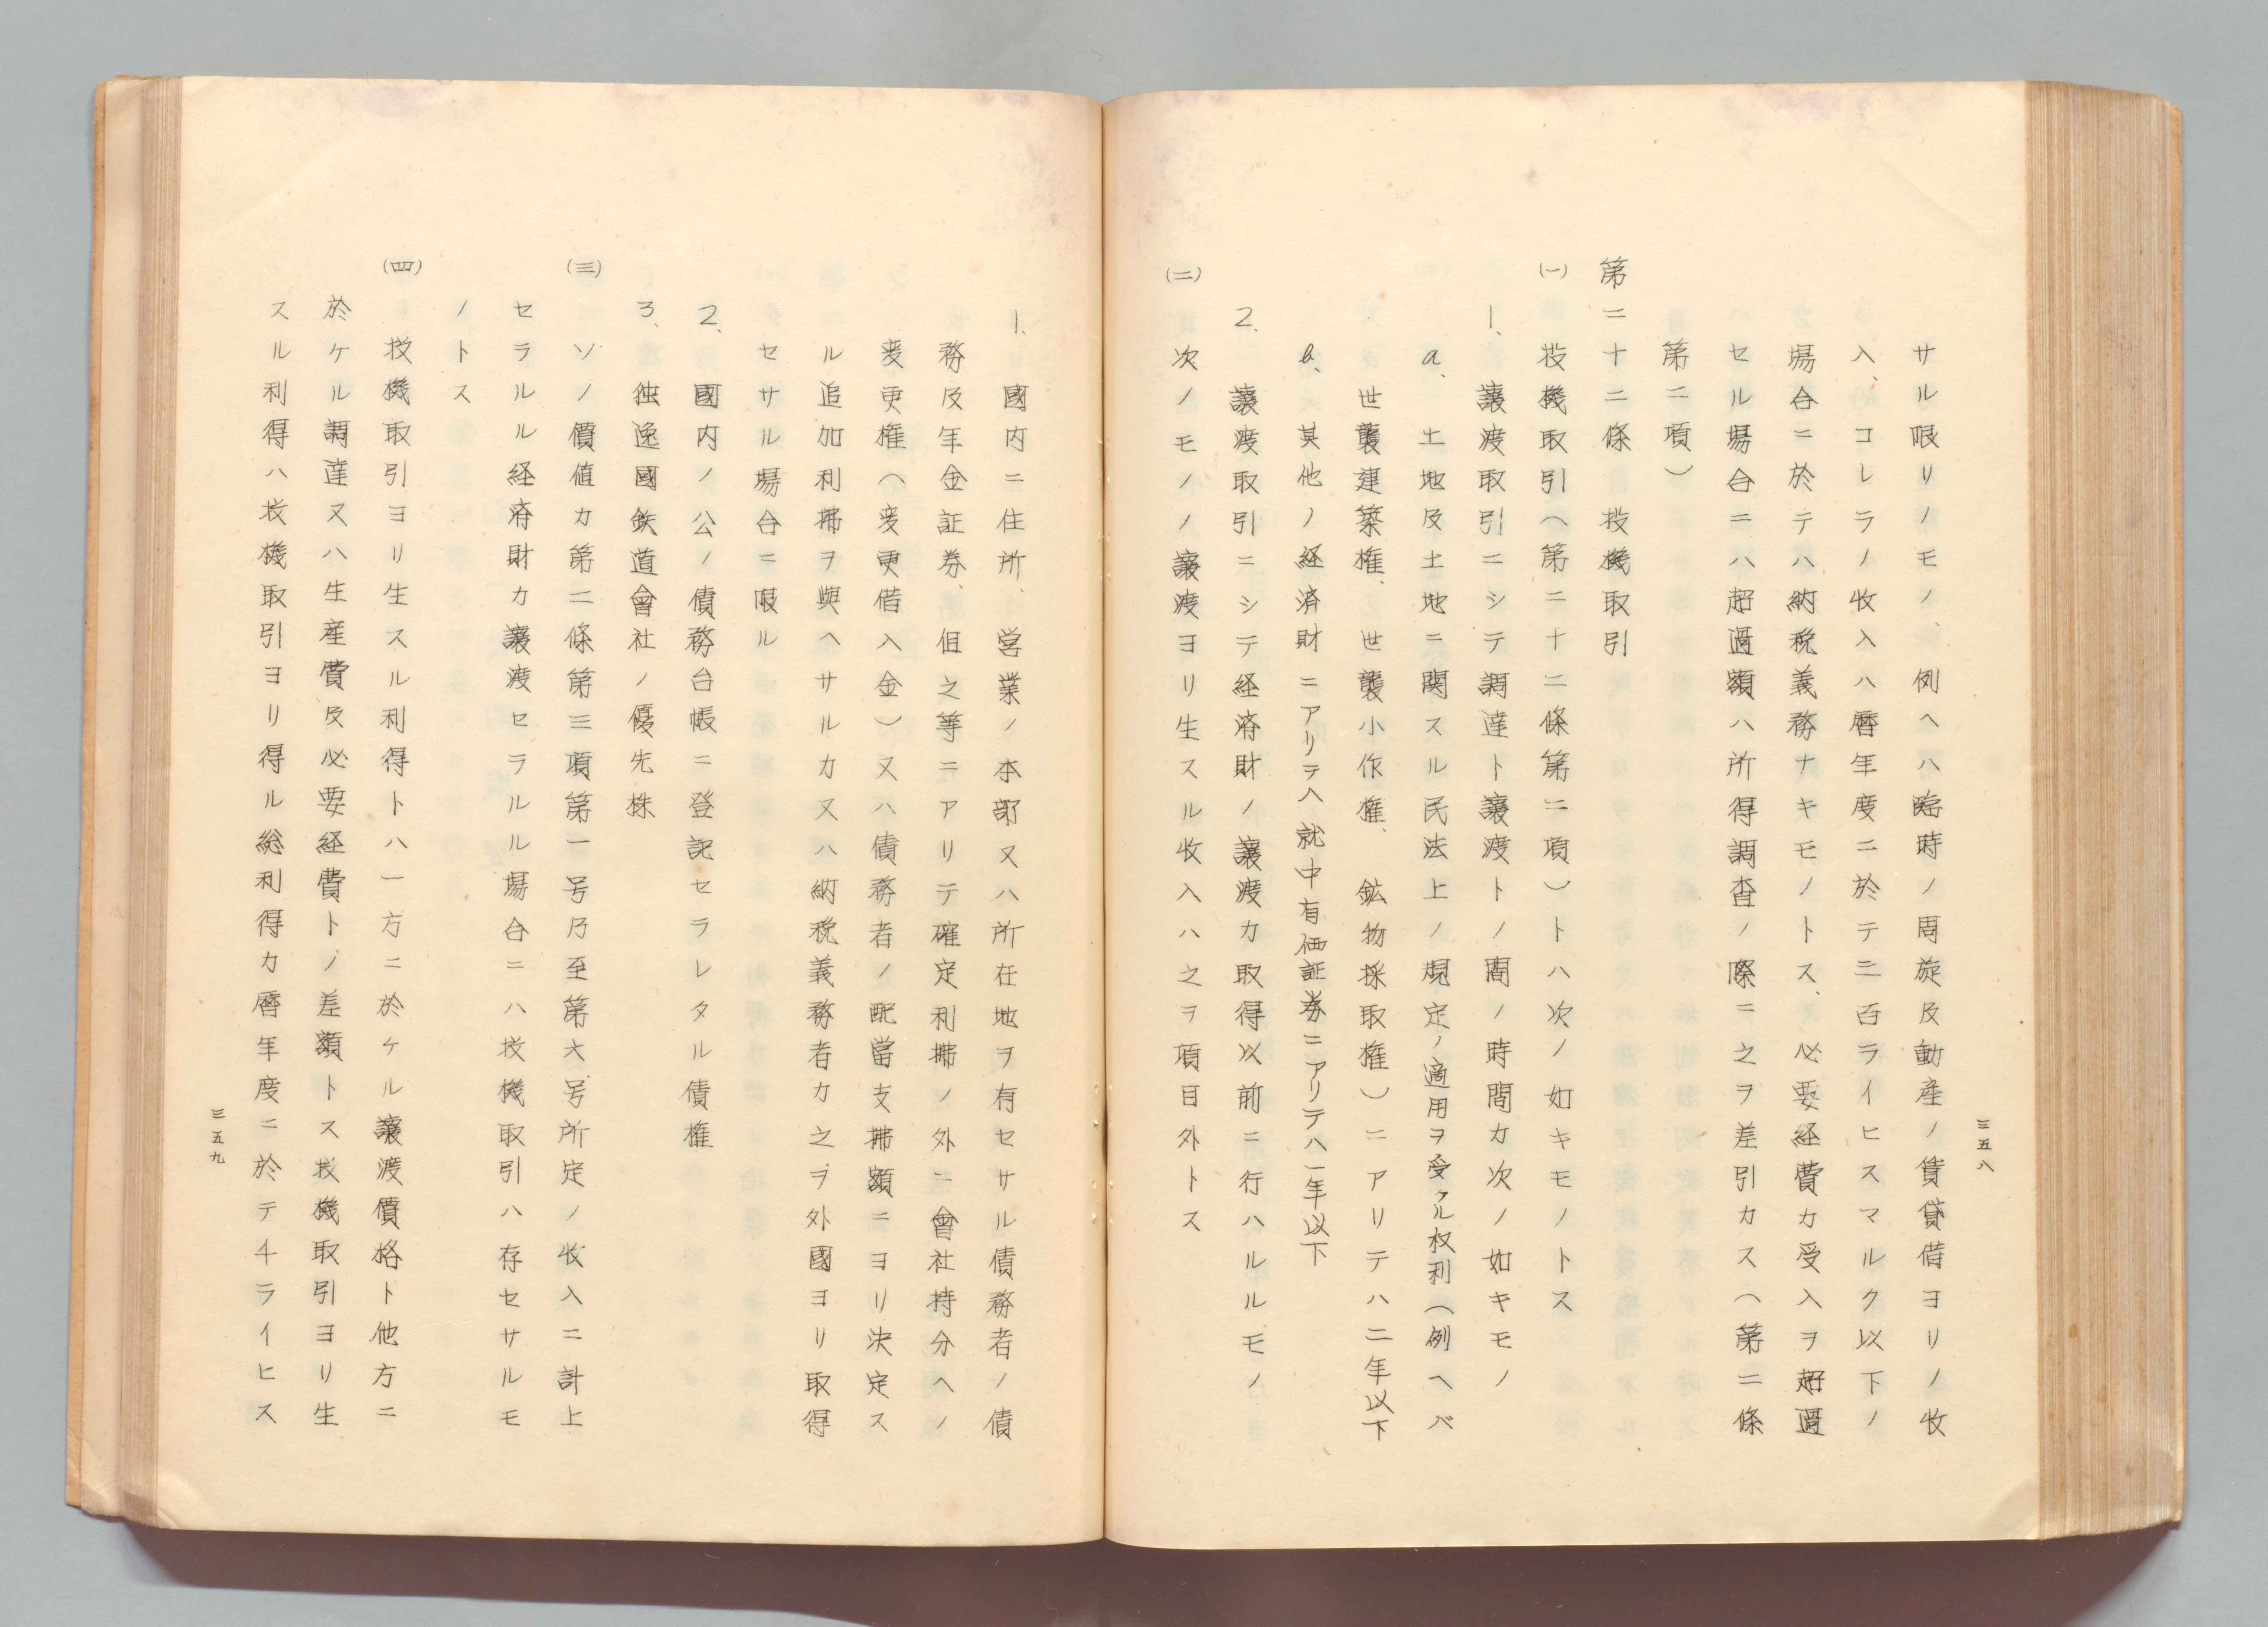 三五八
サル限リノモノ、例ヘハ臨時ノ周旋及動産ノ賃貸借ヨリノ收
入、コレラノ收入ハ暦年度ニ於テ三百ライヒスマルク以下ノ
場合ニ於テハ納税義務ナキモノトス、必要経費カ受入ヲ超過
セル場合ニハ超過額ハ所得調査ノ際ニ之ヲ差引カス（第二條
第二項）
第二十二條 投機取引
(一) 投機取引（第二十二條第二項）トハ次ノ如キモノトス
1、譲渡取引ニシテ調達ト譲渡トノ間ノ時間カ次ノ如キモノ
a、土地及土地ニ関スル民法上ノ規定ノ適用ヲ受クル权利（例ヘバ
世襲建築権、世襲小作権、鉱物採取権）ニアリテハ二年以下
b、其他ノ経済財ニアリテハ就中有価証券ニアリテハ一年以下
2、譲渡取引ニシテ経済財ノ譲渡カ取得以前ニ行ハルルモノ
(二) 次ノモノノ譲渡ヨリ生スル收入ハ之ヲ項目外トス
1、國内ニ住所、営業ノ本部又ハ所在地ヲ有セサル債務者ノ債
務及年金証券、但之等ニアリテ確定利拂ノ外ニ會社持分ヘノ
変更権（変更借入金）又ハ債務者ノ配當支拂額ニヨリ決定ス
ル追加利拂ヲ與ヘサルカ又ハ納税義務者カ之ヲ外國ヨリ取得
セサル場合ニ限ル
2、國内ノ公ノ債務台帳ニ登記セラレタル債権
3、独逸國鉄道會社ノ優先株
(三) ソノ價値カ第二條第三項第一号乃至第六号所定ノ收入ニ計上
セラルル経済財カ譲渡セラルル場合ニハ投機取引ハ存セサルモ
ノトス
(四) 投機取引ヨリ生スル利得トハ一方ニ於ケル譲渡價格ト他方ニ
於ケル調達又ハ生産費及必要経費トノ差額トス投機取引ヨリ生
スル利得ハ投機取引ヨリ得ル総利得カ暦年度ニ於テ千ライヒス
三五九